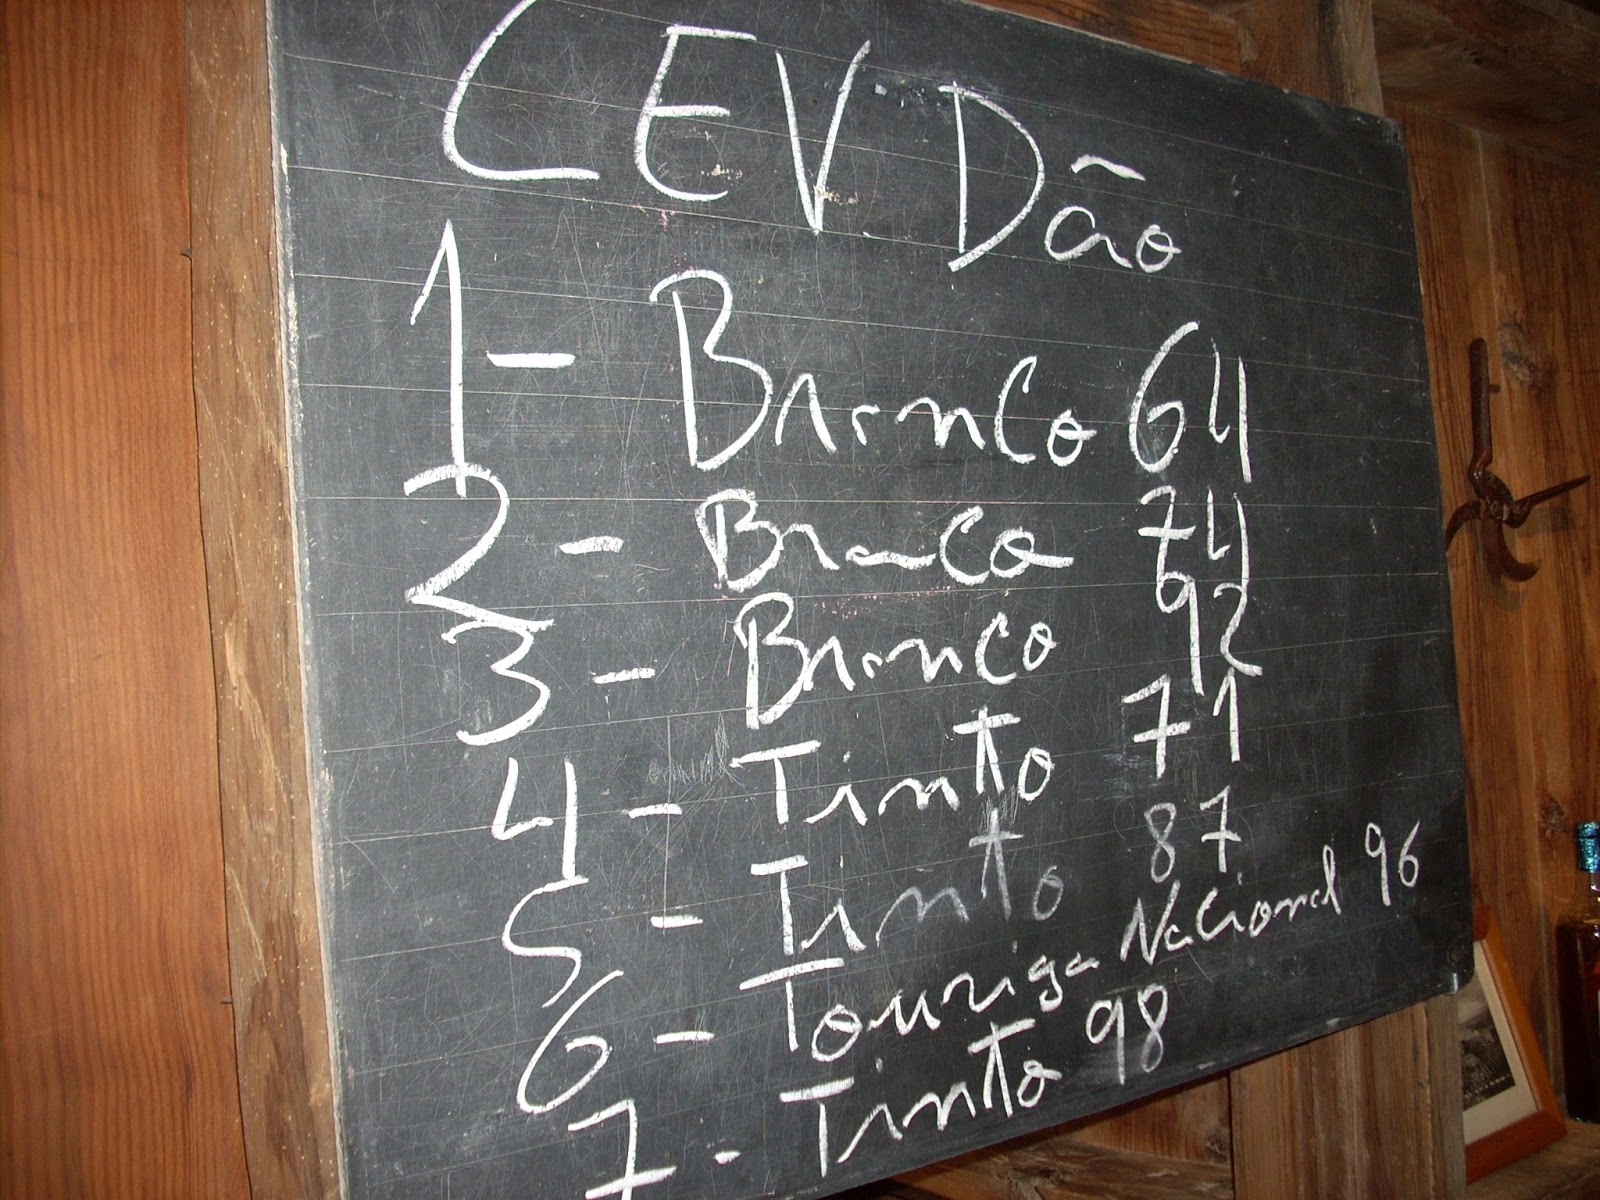 CEV Dão
1 - Branco 64
2 - Branco 74
3 - Branco 92
4 - Tinto 71
5 - Tinto 87
6 - Touriga Nacional 96
7 - Tinto 98